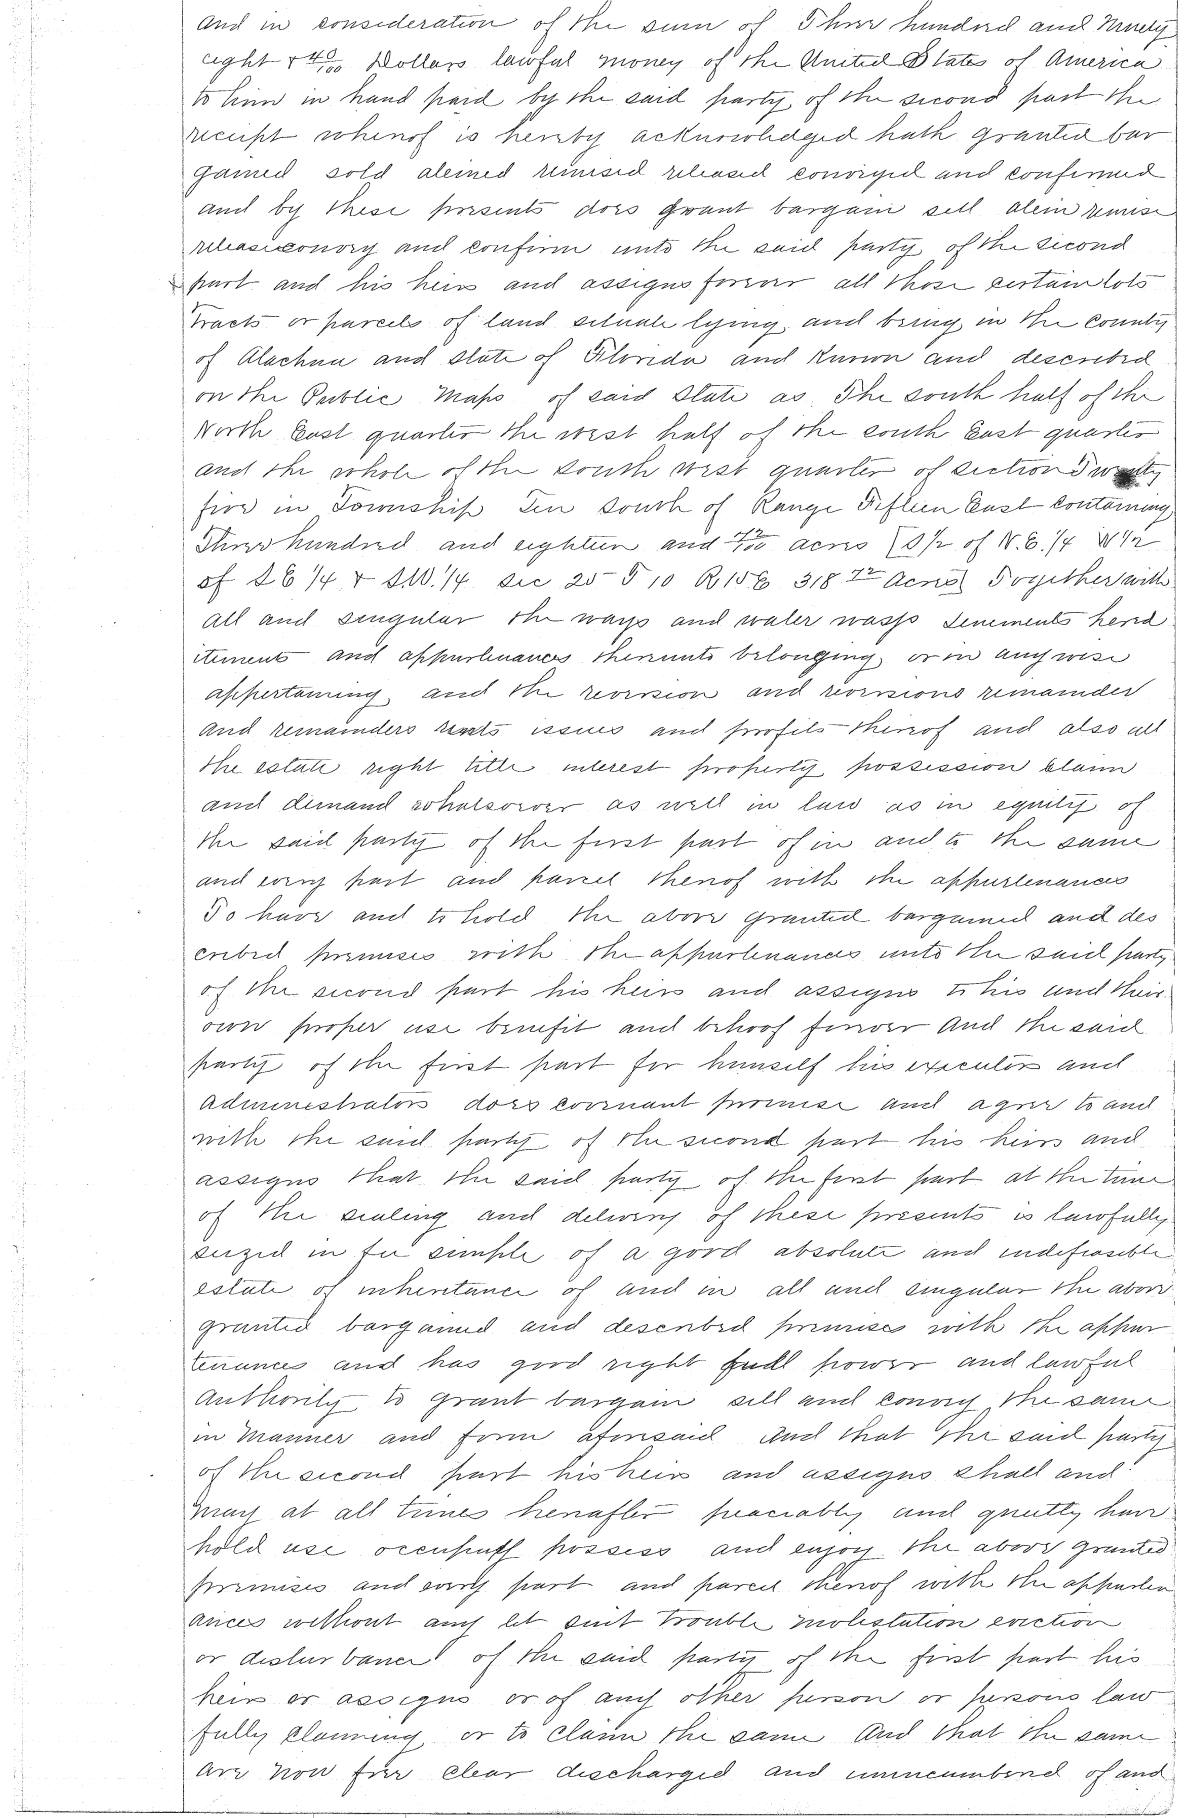 and in consideration of the sum of Three hundred and Ninety
eight & 40/100 Dollars lawful money of the United States of America
to him in hand paid by the said party of the second part the
receipt whereof is hereby acknowledged hath granted bar
gained sold aleined remised released conveyed and confirmed
and by these presents does grant bargain sell alein remise
release convey and confirm unto the said party of the second
part and his heirs and assigns forever all those certain lots
Tracts or parcels of land situate lying and being in the County
of Alachua and state of Florida and Known and described
on the Public Maps of said State as The south half of the
North East quarter the west half of the south East quarter
and the whole of the south west quarter of section Twenty
five in Township Ten south of Range Fifteen East containing
Three hundred and eighteen and 72/100 acres (S1/2 of N.E.1/4 W1/2
of S E 1/4 & S.W.1/4 sec 25 T 10 R 15 E 318 72 Acres) Together with
all and singular the ways and water wasps tenements hered
itements and appurtenances thereunto belonging or in any wise
appertaining and the reversion and reversions remainder
and remainders rents issues and profits thereof and also all
the estate right title interest property possession claim
and demand whatsoever as well in law as in equity of
the said party of the first part of in and to the same
and every part and parcel thereof with the appurtenances
To have and to hold the above granted bargained and des
cribed premises with the appurtenances unto the said party
of the second part his heirs and assigns to his and their
own proper use benefit and behoof forever And the said
party of the first part for himself his executors and
administrators does covenant promise and agree to and
with the said party of the second part his heirs and
assigns that the said party of the first part at the time
of the sealing and delivery of these presents is lawfully
seized in fee simple of a good absolute and indefeasible
estate of inheritance of and in all and singular the above
granted bargained and described premises with the appur
tenances and has good right full power and lawful
Authority to grant bargain sell and convey the same
in Manner and form aforesaid And that the said party
of the second part his heirs and assigns shall and
may at all times hereafter peaceably and quietly have
hold use occupy possess and enjoy the above granted
premises and every part and parcel thereof with the appurten
ances without any let suit trouble molestation eviction
or disturbance of the said party of the first part his
heirs or assigns or of any other person or persons law
fully claiming or to claim the same And that the same
are now free clear discharged and unincumbered of and